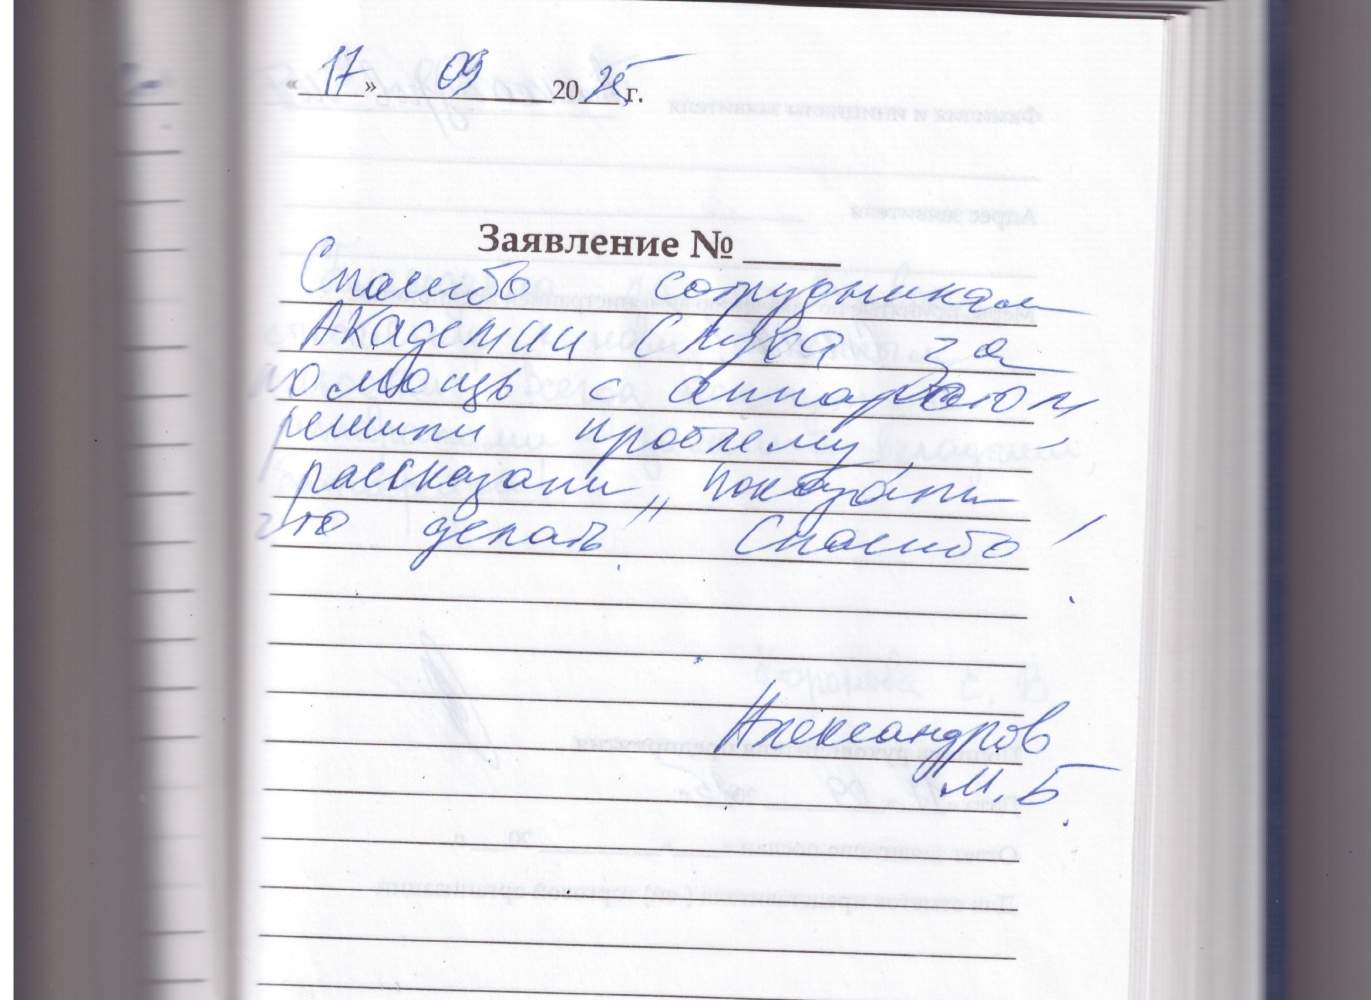 «17» 09 2025 г.
Заявление № ____
Спасибо сотрудникам
Академии Слуха за
помощь с аппаратом
решили проблему,
рассказали, показали
что делать. Спасибо!
Александров
М.Б.